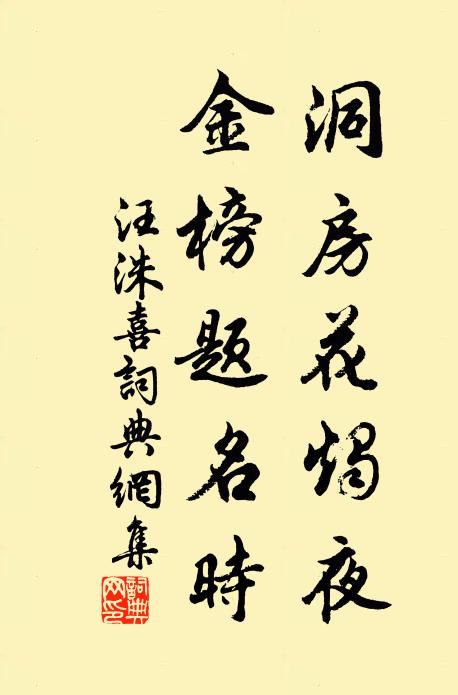 洞房花燭夜
金榜題名時
汪洙喜詞典網集
詞典网印